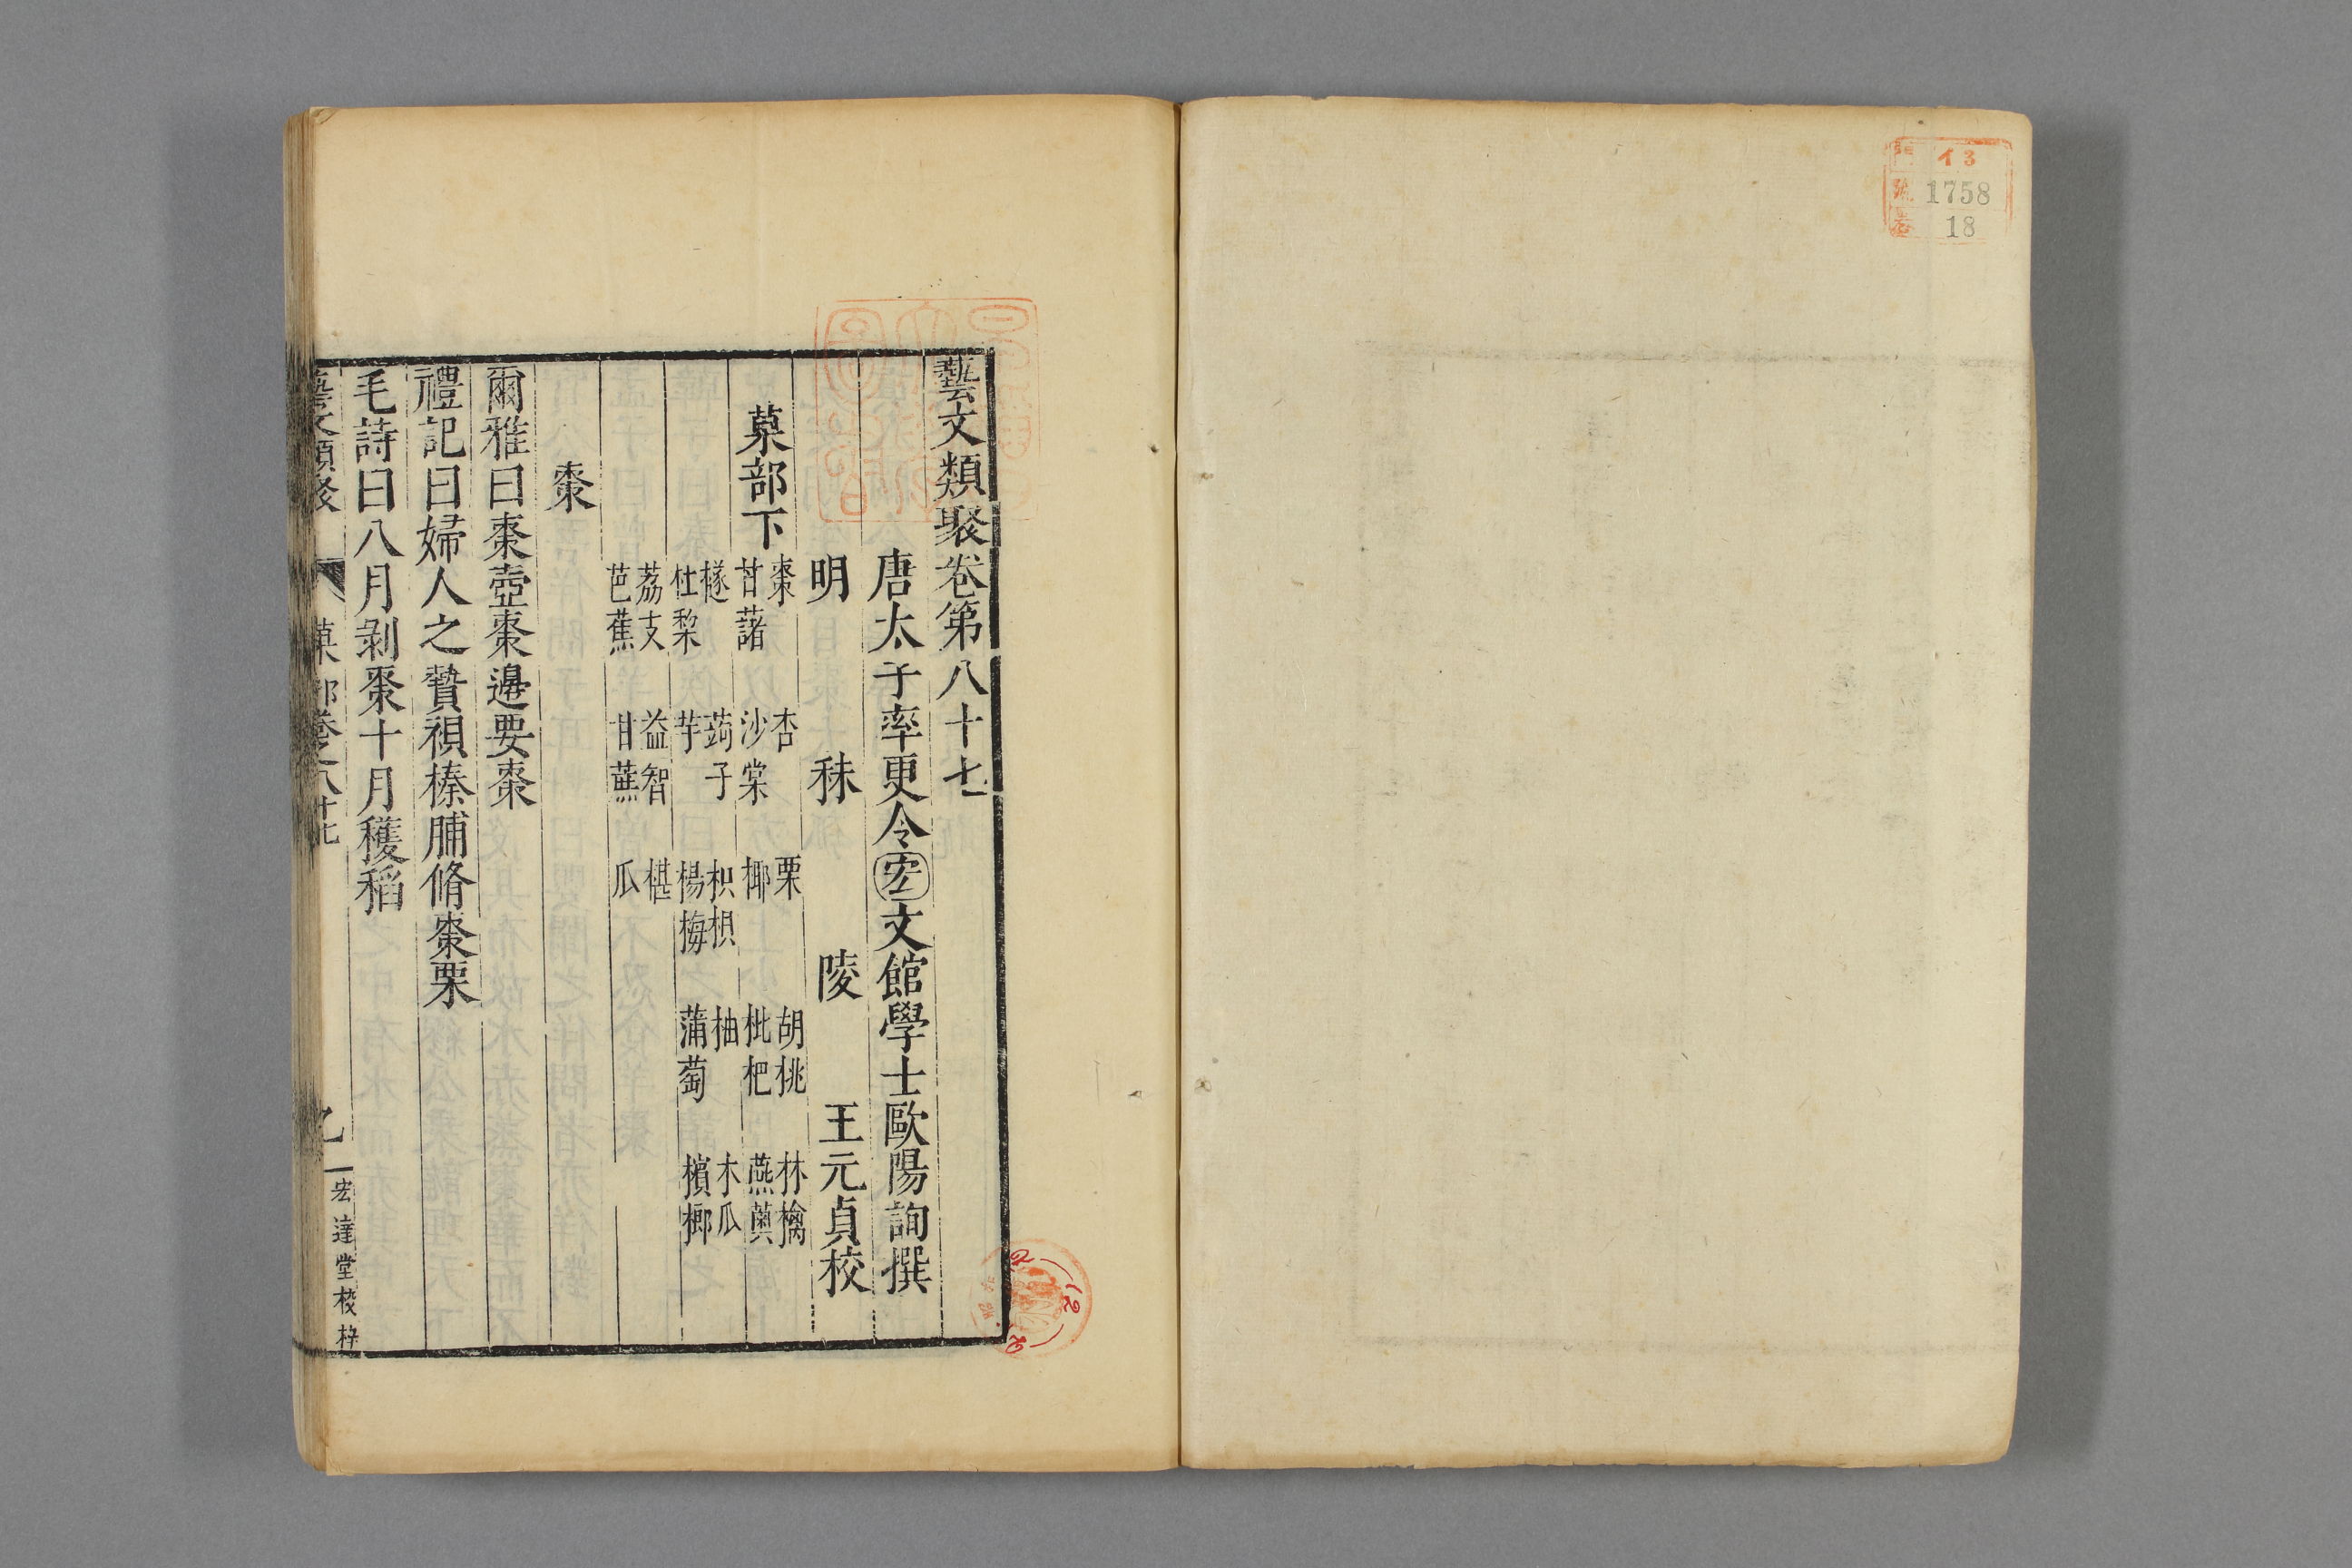 イ3
1758
18
藝文類聚卷第八十七
唐太子率更令宏文館學士歐陽詢撰
明 秣 陵 王元貞校
菓部下 棗 杏 栗 胡桃 林檎
甘藷 沙棠 椰 枇杷 燕薁
檖 蒟子 枳椇 柚 木瓜
杜梨 芋 楊梅 蒲萄 檳榔
荔支 益智 椹
芭蕉 甘蔗 瓜
棗
爾雅曰棗壺棗邊要棗
禮記曰婦人之贄椇榛脯脩棗栗
毛詩曰八月剥棗十月穫稻
藝文類聚 菓部卷之八十七
宏達堂校梓